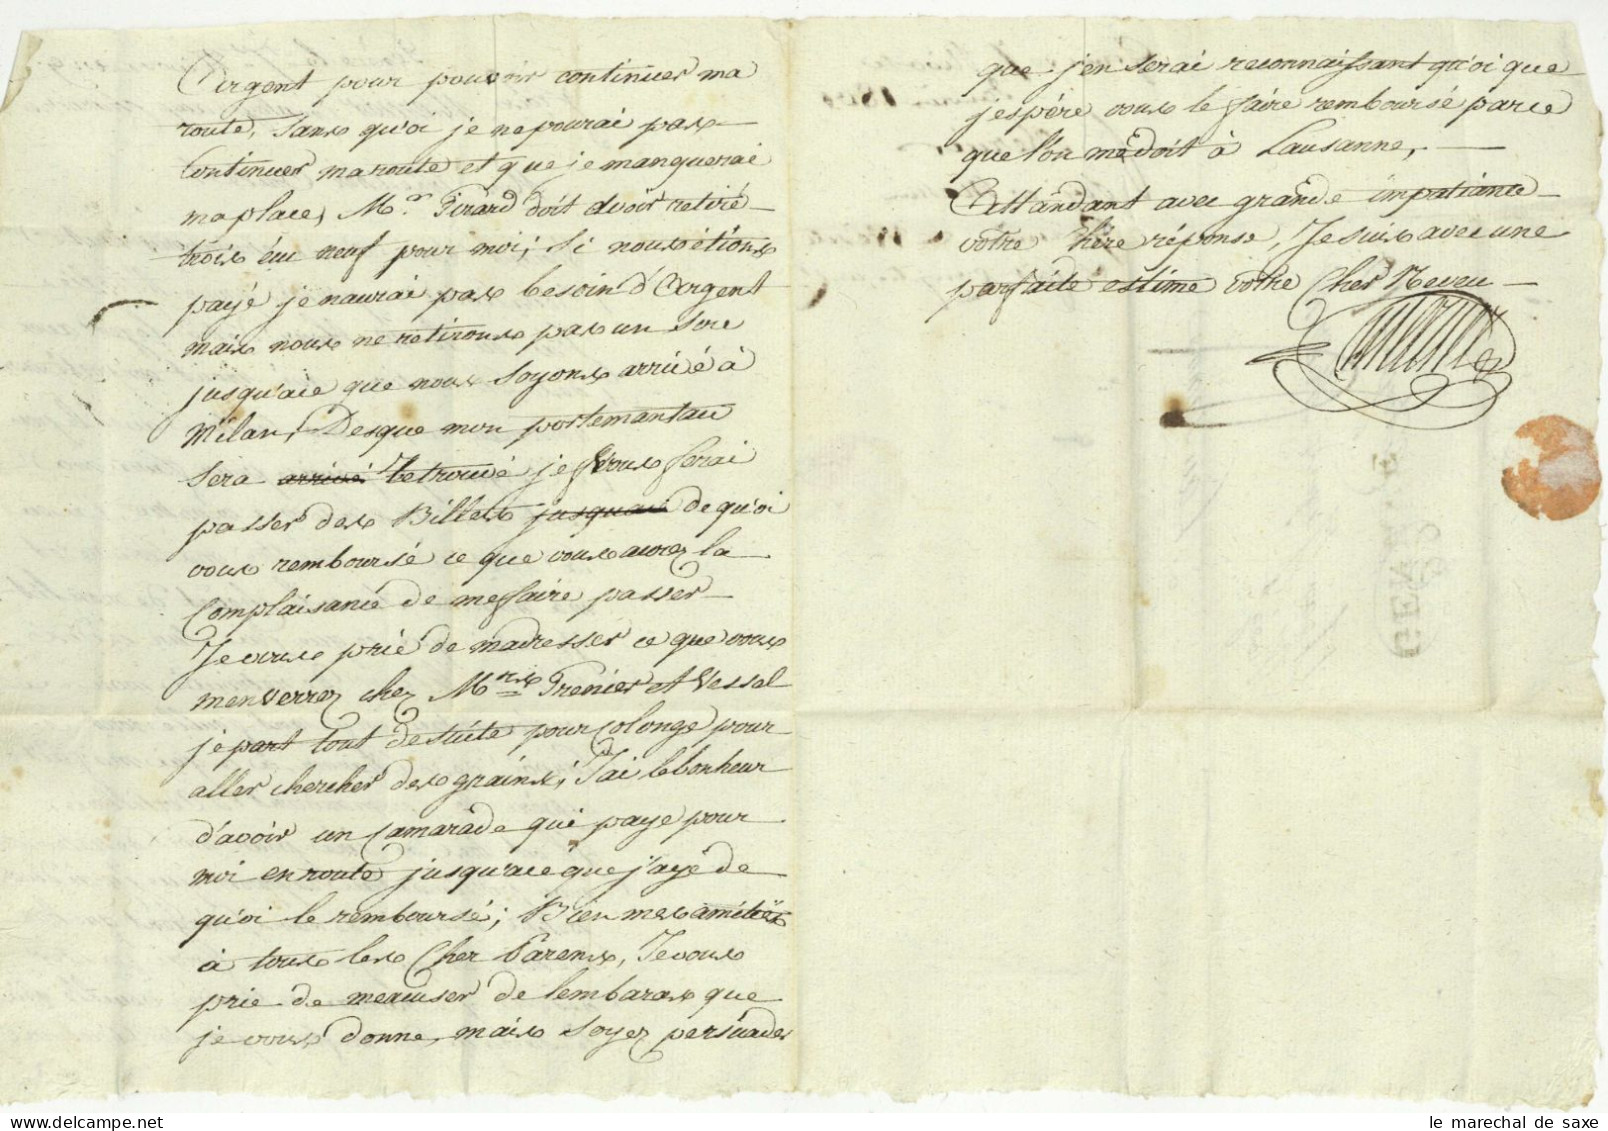 Argent pour pouvoir continuer ma
route, sans qu'oi je ne pourai pas
Continuer ma route et que je manquerai
ma place, Mr. Girard doit avoir retiré
trois éu neuf pour moi; Si nous étions
payé je naurai pas besoin d'Argent
mais nous ne retirons pas un Sore
jusqu'ace que nous Soyons arrivé à
Milan; Desque mon portemantau
Sera arrivé retrouvé je vous ferai
passer des Billets jusqua de qu'oi
vous remboursé ce que vous aurez la
Complaisance de me faire passer
Je vous prie de madresser ce que vous
menverrez chez Mrs Grenier et Vessel
je part tout de suite pour Colonge pour
aller chercher des grains; J'ai le bonheur
d'avoir un Camarade qui paye pour
moi en route jusqu'ace que j'ayé de
qu'oi le remboursé; Bien mes amitiés
à tous les Cher Parens, Je vous
prie de mexcuser de lembaras que
je vous donne, mais Soyez persuader
que j'en serai reconnaissant qu'oi que
jespère vous le faire remboursé parce
que l'on me doit à Lausanne,
Attandant avec grande impatiance
votre Chère réponse, Je suis avec une
parfaite estime votre Cher Neveu
GENEVE
le marechal de saxe